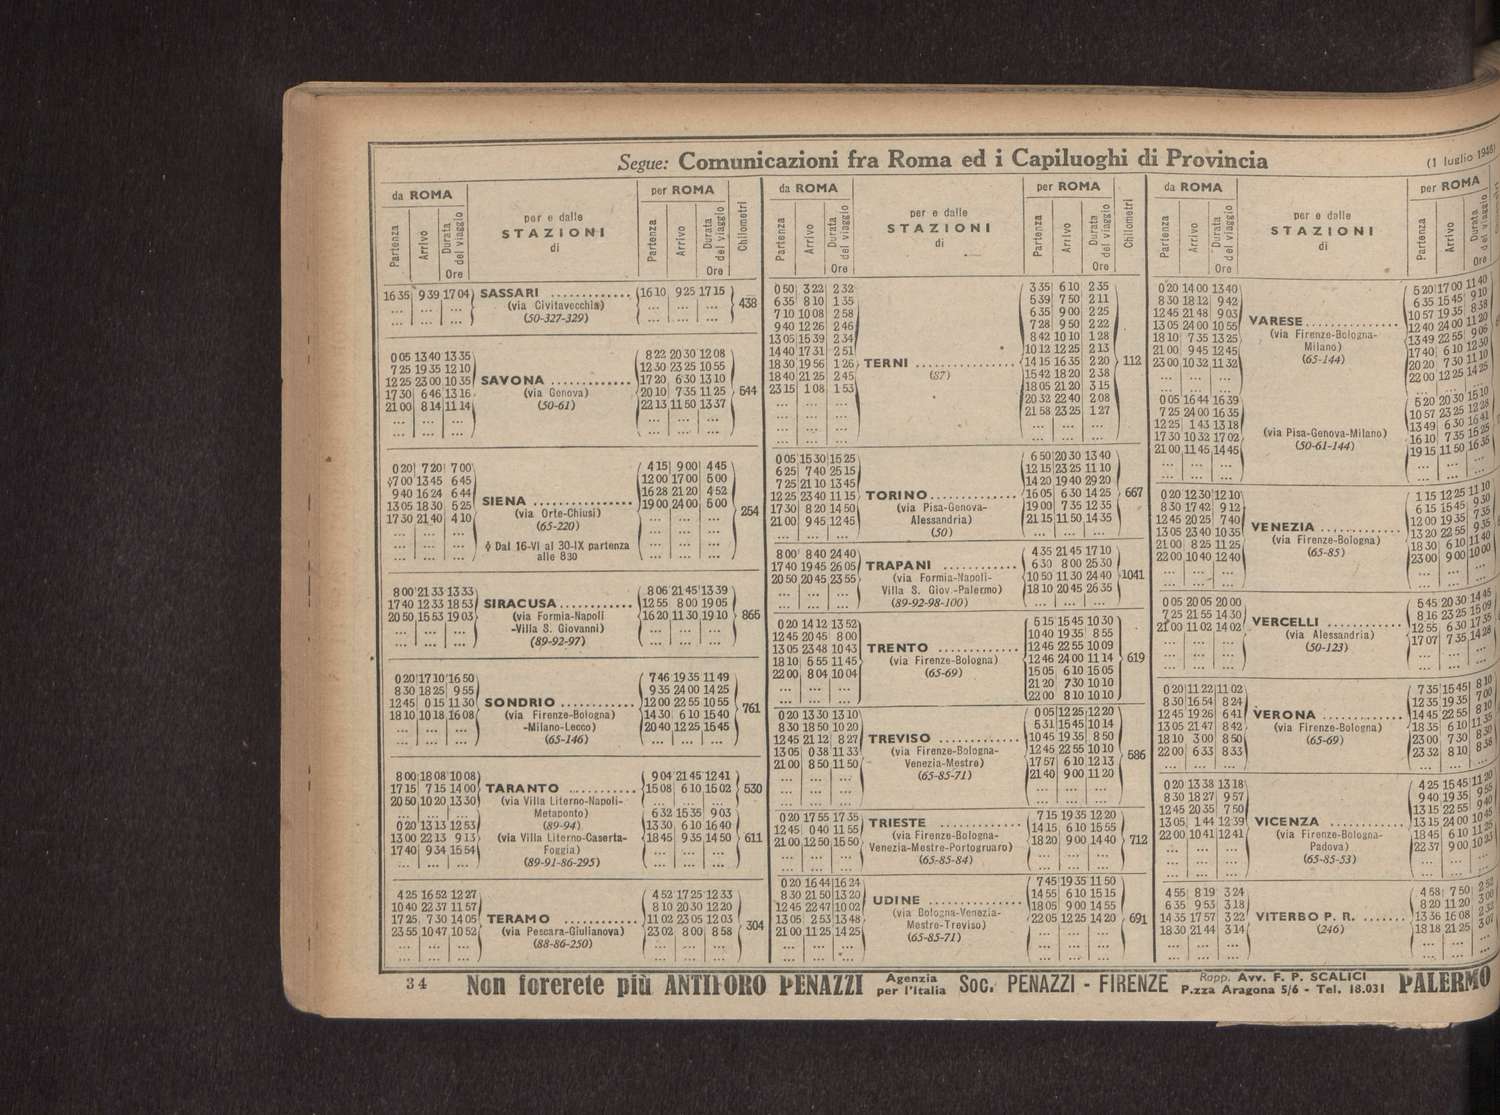 Segue: Comunicazioni fra Roma ed i Capiluoghi di Provincia
(1 luglio 1946)
da ROMA
Partenza
Arrivo
Durata del viaggio
Ore
per e dalle
STAZIONI
di
per ROMA
Partenza
Arrivo
Durata del viaggio
Ore
Chilometri
16 35 9 39 17 04 SASSARI ............ 16 10 9 25 17 15 438
... ... ... (via Civitavecchia) ... ... ...
... ... ... (50-327-329) ... ... ...
0 05 13 40 13 35 8 22 20 30 12 08
7 25 19 35 12 10 12 30 23 25 10 55
12 25 23 00 10 35 SAVONA ............ 17 20 6 30 13 10 544
17 30 6 46 13 16 (via Genova) 20 10 7 35 11 25
21 00 8 14 11 14 (50-61) 22 13 11 50 13 37
... ... ... ... ... ...
... ... ... ... ... ...
0 20 7 20 7 00 4 15 9 00 4 45
◊7 00 13 45 6 45 12 00 17 00 5 00
9 40 16 24 6 44 SIENA ............... 16 28 21 20 4 52 254
13 05 18 30 5 25 (via Orte-Chiusi) 19 00 24 00 5 00
17 30 21 40 4 10 (65-220) ... ... ...
... ... ... ... ... ...
... ... ... ◊ Dal 16-VI al 30-IX partenza ... ... ...
... ... ... alle 8 30 ... ... ...
8 00 21 33 13 33 8 06 21 45 13 39
17 40 12 33 18 53 SIRACUSA ........... 12 55 8 00 19 05 865
20 50 15 53 19 03 (via Formia-Napoli 16 20 11 30 19 10
... ... ... -Villa S. Giovanni) ... ... ...
... ... ... (89-92-97) ... ... ...
0 20 17 10 16 50 7 46 19 35 11 49
8 30 18 25 9 55 9 35 24 00 14 25
12 45 0 15 11 30 SONDRIO ........... 12 00 22 55 10 55 761
18 10 10 18 16 08 (via Firenze-Bologna) 14 30 6 10 15 40
... ... ... -Milano-Lecco) 20 40 12 25 15 45
... ... ... (65-146) ... ... ...
8 00 18 08 10 08 9 04 21 45 12 41
17 15 7 15 14 00 TARANTO ........... 15 08 6 10 15 02 530
20 50 10 20 13 30 (via Villa Literno-Napoli- ... ... ...
... ... ... Metaponto) 6 32 15 35 9 03
0 20 13 13 12 53 (89-94) 13 30 6 10 16 40
13 00 22 13 9 13 (via Villa Literno-Caserta- 18 45 9 35 14 50 611
17 40 9 34 15 54 Foggia) ... ... ...
... ... ... (89-91-86-295) ... ... ...
4 25 16 52 12 27 4 52 17 25 12 33
10 40 22 37 11 57 8 10 20 30 12 20
17 25 7 30 14 05 TERAMO ............ 11 02 23 05 12 03 304
23 55 10 47 10 52 (via Pescara-Giulianova) 23 02 8 00 8 58
... ... ... (88-86-250) ... ... ...
... ... ... ... ... ...
da ROMA
Partenza
Arrivo
Durata del viaggio
Ore
per e dalle
STAZIONI
di
per ROMA
Partenza
Arrivo
Durata del viaggio
Ore
Chilometri
0 50 3 22 2 32 3 35 6 10 2 35
6 35 8 10 1 35 5 39 7 50 2 11
7 10 10 08 2 58 6 35 9 00 2 25
9 40 12 26 2 46 7 28 9 50 2 22
13 05 15 39 2 34 8 42 10 10 1 28
14 40 17 31 2 51 10 12 12 25 2 13
18 30 19 56 1 26 TERNI ............... 14 15 16 35 2 20 112
18 40 21 25 2 45 (87) 15 42 18 20 2 38
23 15 1 08 1 53 18 05 21 20 3 15
... ... ... 20 32 22 40 2 08
... ... ... 21 58 23 25 1 27
... ... ... ... ... ...
... ... ... ... ... ...
0 05 15 30 15 25 6 50 20 30 13 40
6 25 7 40 25 15 12 15 23 25 11 10
7 25 21 10 13 45 14 20 19 40 29 20
12 25 23 40 11 15 TORINO ............. 16 05 6 30 14 25 667
17 30 8 20 14 50 (via Pisa-Genova- 19 00 7 35 12 35
21 00 9 45 12 45 Alessandria) 21 15 11 50 14 35
... ... ... (50) ... ... ...
8 00 8 40 24 40 4 35 21 45 17 10
17 40 19 45 26 05 TRAPANI ........... 6 30 8 00 25 30
20 50 20 45 23 55 (via Formia-Napoli- 10 50 11 30 24 40 1041
... ... ... Villa S. Giov.-Palermo) 18 10 20 45 26 35
... ... ... (89-92-98-100) ... ... ...
0 20 14 12 13 52 5 15 15 45 10 30
12 45 20 45 8 00 10 40 19 35 8 55
13 05 23 48 10 43 TRENTO ............ 12 46 22 55 10 09
18 10 5 55 11 45 (via Firenze-Bologna) 12 46 24 00 11 14 619
22 00 8 04 10 04 (65-69) 15 05 6 10 15 05
... ... ... 21 20 7 30 10 10
... ... ... 22 00 8 10 10 10
0 20 13 30 13 10 0 05 12 25 12 20
8 30 18 50 10 20 5 31 15 45 10 14
12 45 21 12 8 27 TREVISO ............ 10 45 19 35 8 50
13 05 0 38 11 33 (via Firenze-Bologna- 12 45 22 55 10 10 586
21 00 8 50 11 50 Venezia-Mestre) 17 57 6 10 12 13
... ... ... (65-85-71) 21 40 9 00 11 20
... ... ... ... ... ...
... ... ... ... ... ...
0 20 17 55 17 35 7 15 19 35 12 20
12 45 0 40 11 55 TRIESTE ............ 14 15 6 10 15 55
21 00 12 50 15 50 (via Firenze-Bologna- 18 20 9 00 14 40 712
... ... ... Venezia-Mestre-Portogruaro) ... ... ...
... ... ... (65-85-84) ... ... ...
0 20 16 44 16 24 7 45 19 35 11 50
8 30 21 50 13 20 UDINE ............... 14 55 6 10 15 15
12 45 22 47 10 02 (via Bologna-Venezia- 18 05 9 00 14 55
13 05 2 53 13 48 Mestre-Treviso) 22 05 12 25 14 20 691
21 00 11 25 14 25 (65-85-71) ... ... ...
... ... ... ... ... ...
... ... ... ... ... ...
da ROMA
Partenza
Arrivo
Durata del viaggio
Ore
per e dalle
STAZIONI
di
per ROMA
Partenza
Arrivo
Durata del viaggio
0 20 14 00 13 40 5 20 17 00 11 40
8 30 18 12 9 42 6 35 15 45 9 10
12 45 21 48 9 03 VARESE ............... 10 57 19 35 8 38
13 05 24 00 10 55 (via Firenze-Bologna- 12 40 24 00 11 20
18 10 7 35 13 25 Milano) 13 49 22 55 9 06
21 00 9 45 12 45 (65-144) 17 40 6 10 12 30
23 00 10 32 11 32 20 20 7 30 11 10
... ... ... 22 00 12 25 14 25
... ... ... ... ... ...
0 05 16 44 16 39 5 20 20 30 15 10
7 25 24 00 16 35 10 57 23 25 12 28
12 25 1 43 13 18 (via Pisa-Genova-Milano) 13 49 6 30 16 41
17 30 10 32 17 02 (50-61-144) 16 10 7 35 15 25
21 00 11 45 14 45 19 15 11 50 16 35
... ... ... ... ... ...
... ... ... ... ... ...
0 20 12 30 12 10 1 15 12 25 11 10
8 30 17 42 9 12 6 15 15 45 9 30
12 45 20 25 7 40 VENEZIA ............ 12 00 19 35 7 35
13 05 23 40 10 35 (via Firenze-Bologna) 13 20 22 55 9 35
21 00 8 25 11 25 (65-85) 18 30 6 10 11 40
22 00 10 40 12 40 23 00 9 00 10 00
... ... ... ... ... ...
... ... ... ... ... ...
0 05 20 05 20 00 5 45 20 30 14 45
7 25 21 55 14 30 VERCELLI ............ 8 16 23 25 15 09
21 00 11 02 14 02 (via Alessandria) 12 55 6 30 17 35
... ... ... (50-123) 17 07 7 35 14 28
... ... ... ... ... ...
... ... ... ... ... ...
0 20 11 22 11 02 7 35 15 45 8 10
8 30 16 54 8 24 12 35 19 35 7 00
12 45 19 26 6 41 VERONA ............ 14 45 22 55 8 10
13 05 21 47 8 42 (via Firenze-Bologna) 18 35 6 10 11 35
18 10 3 00 8 50 (65-69) 23 00 7 30 8 30
22 00 6 33 8 33 23 32 8 10 8 38
... ... ... ... ... ...
0 20 13 38 13 18 4 25 15 45 11 20
8 30 18 27 9 57 9 40 19 35 9 55
12 45 20 35 7 50 13 15 22 55 9 40
13 05 1 44 12 39 VICENZA ............ 13 15 24 00 10 45
22 00 10 41 12 41 (via Firenze-Bologna- 18 45 6 10 11 25
... ... ... Padova) 22 37 9 00 10 23
... ... ... (65-85-53) ... ... ...
... ... ... ... ... ...
4 55 8 19 3 24 4 58 7 50 2 52
6 35 9 53 3 18 8 20 11 20 3 00
14 35 17 57 3 22 VITERBO P. R. ....... 13 36 16 08 2 32
18 30 21 44 3 14 (246) 18 18 21 25 3 07
... ... ... ... ... ...
... ... ... ... ... ...
34 Non forerete più ANTIFORO PENAZZI Agenzia per l'Italia Soc. PENAZZI - FIRENZE Rapp. Avv. F. P. SCALICI P.zza Aragona 5/6 - Tel. 18.031 PALERMO